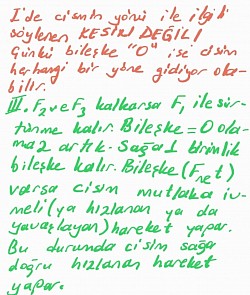 I'de cismin yönü ile ilgili
söylenen KESİN DEĞİL!
Çünkü bileşke "0" ise cisim
herhangi bir yöne gidiyor ola-
bilir.
III. F2 ve F3 kalkarsa F1 ile sür-
tünme kalır. Bileşke = 0 ola-
maz artık. Sağa 1 birimlik
bileşke kalır. Bileşke (Fnet)
varsa cisim mutlaka iv-
meli (ya hızlanan ya da
yavaşlayan) hareket yapar.
Bu durumda cisim sağa
doğru hızlanan hareket
yapar.